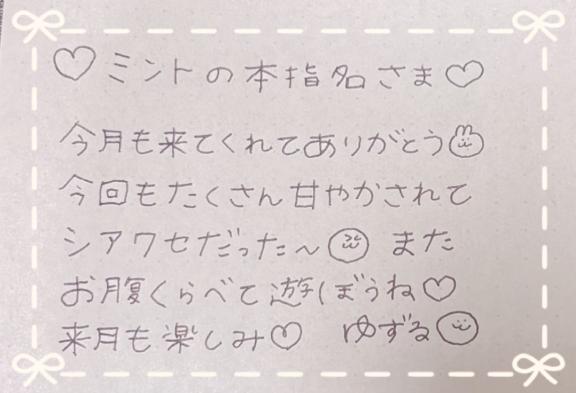 ♡ミントの本指名さま♡
今月も来てくれてありがとう
今回もたくさん甘やかされて
シアワセだった〜 また
お腹くらべて遊ぼうね♡
来月も楽しみ♡ ゆずる